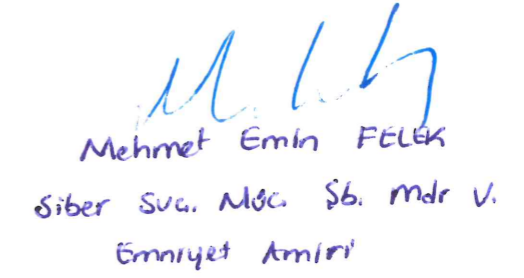 Mehmet Emin FELEK
Siber Suç. Müc. Şb. Mdr V.
Emniyet Amiri